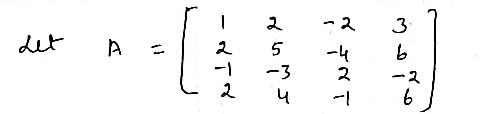 Let A = [ 1 2 -2 3
2 5 -4 6
-1 -3 2 -2
2 4 -1 6 ]